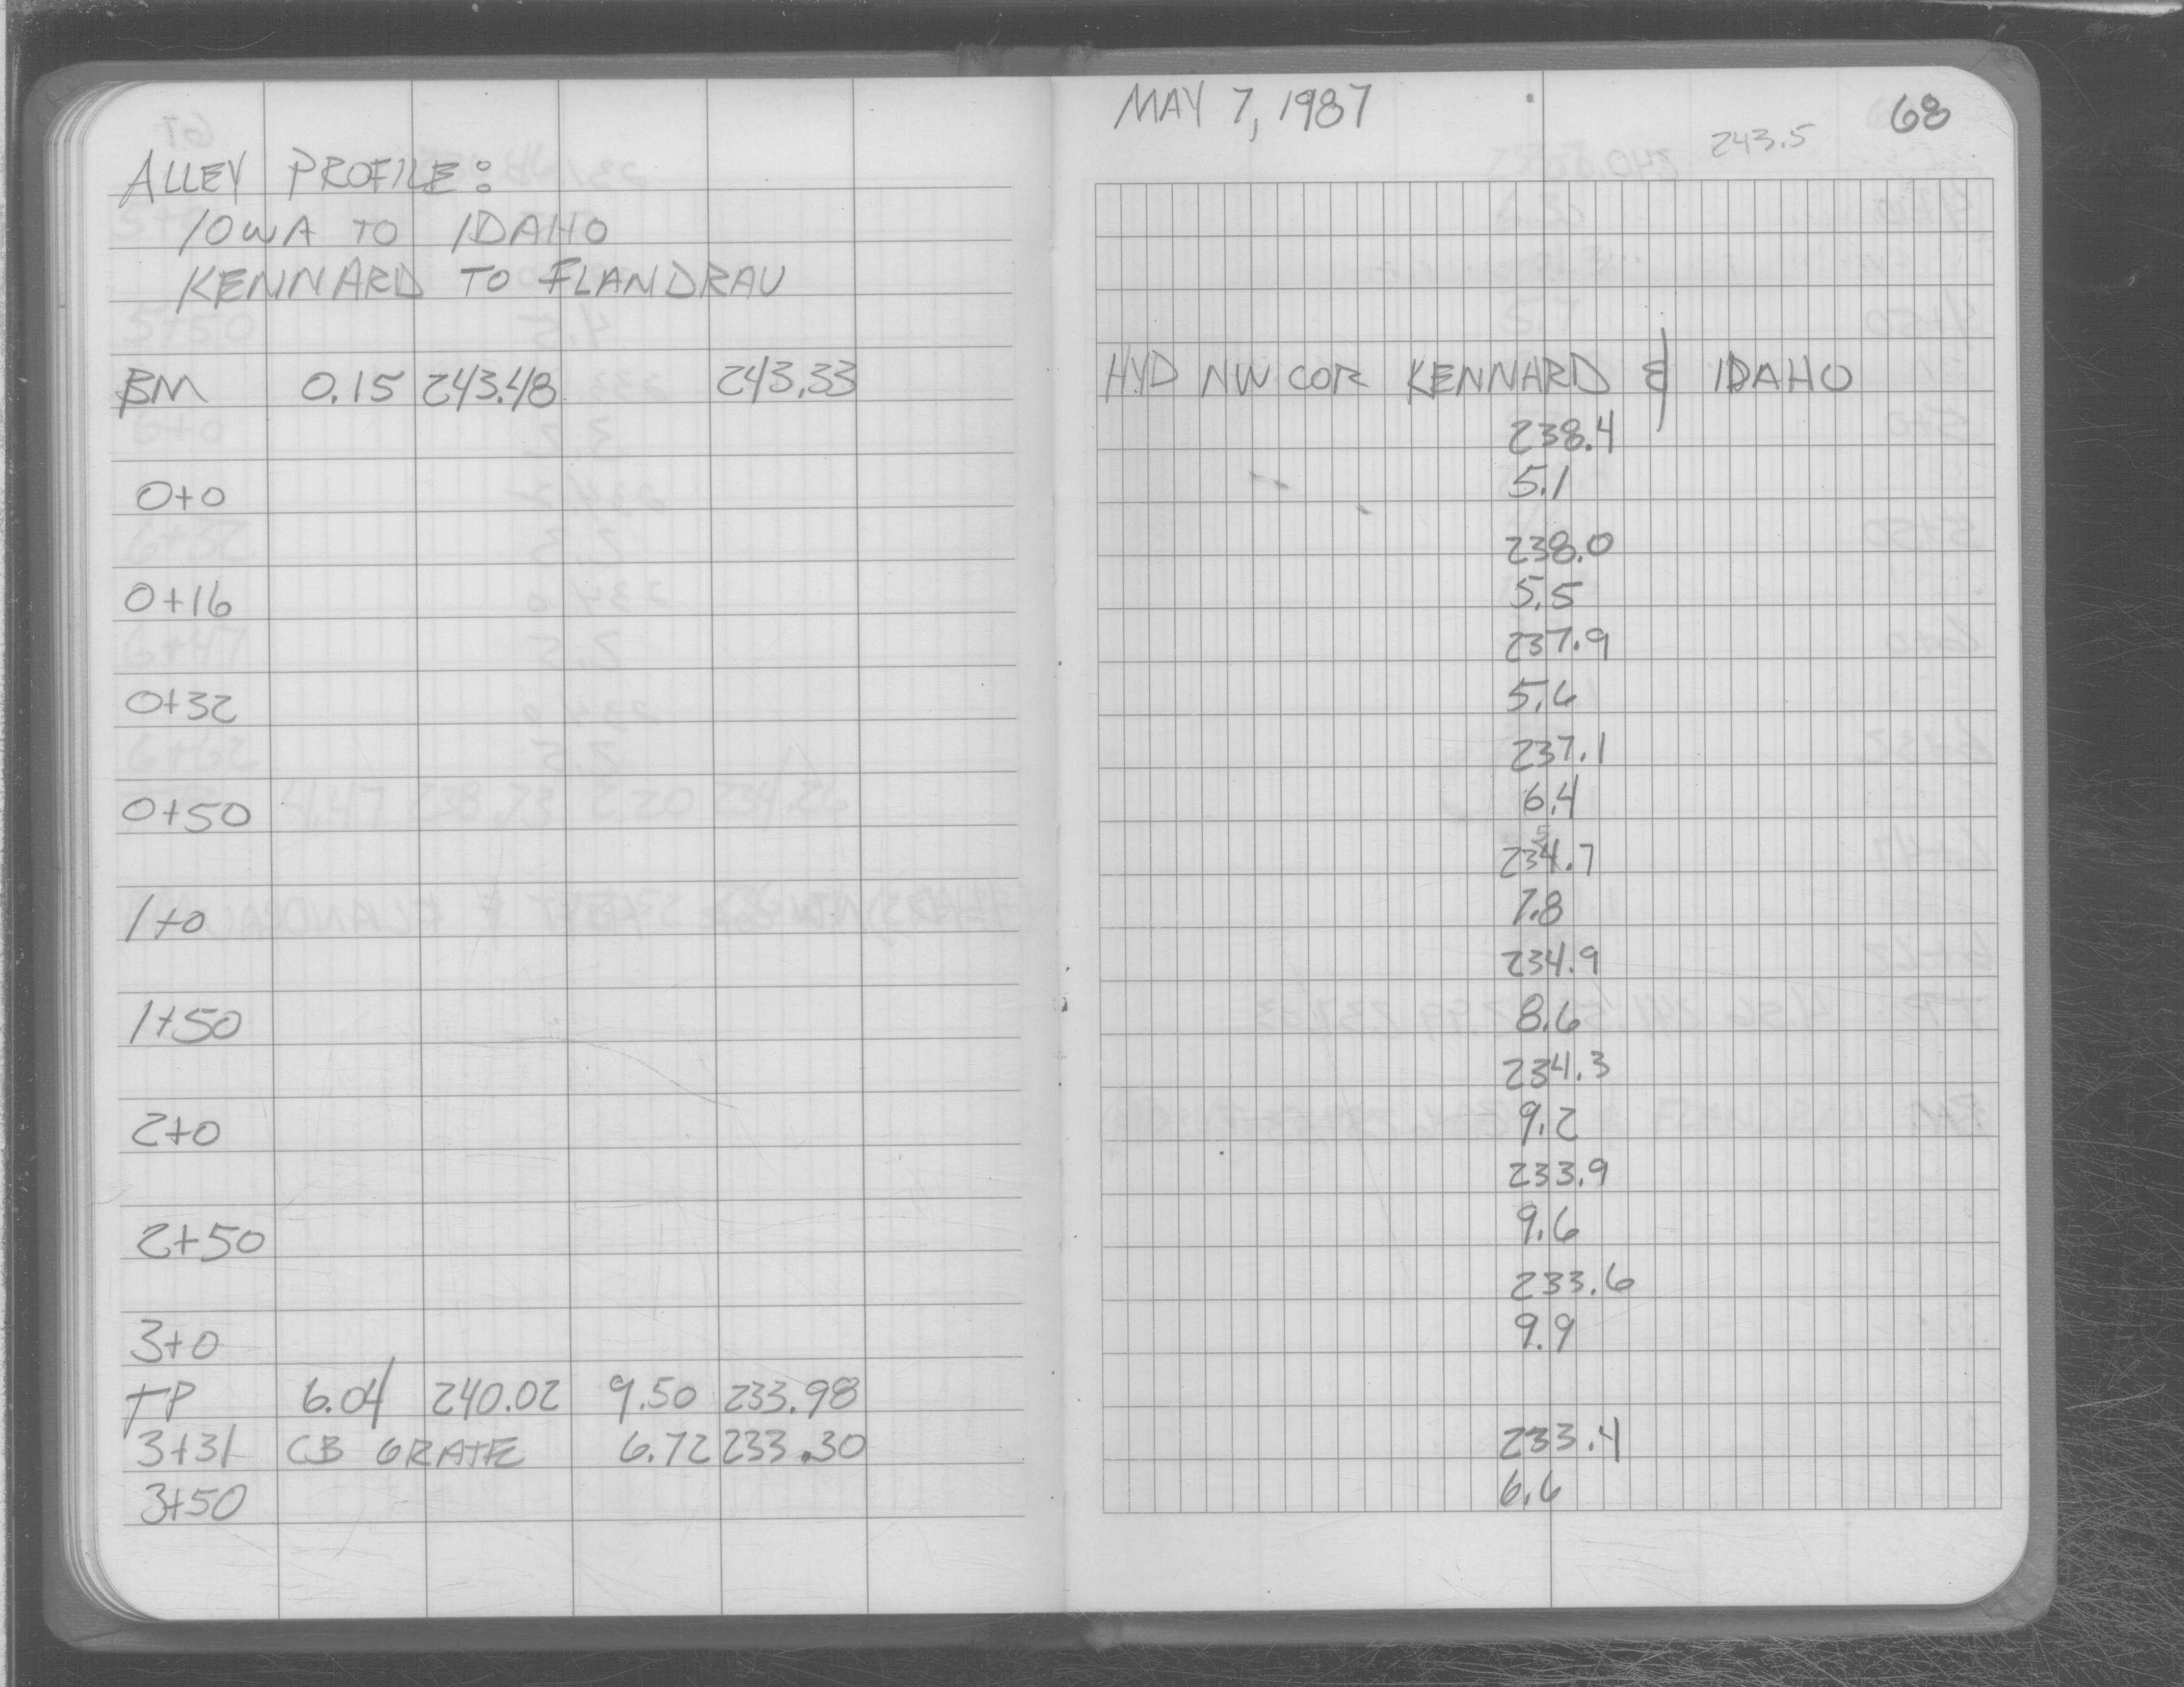 ALLEY PROFILE:
IOWA TO IDAHO
KENNARD TO FLANDRAU
BM 0.15 243.48 243.33
0+0
0+16
0+32
0+50
1+0
1+50
2+0
2+50
3+0
TP 6.04 240.02 9.50 233.98
3+31 CB GRATE 6.72 233.30
3+50
MAY 7, 1987 68
243.5
HYD NW COR KENNARD & IDAHO
238.4
5.1
238.0
5.5
237.9
5.6
237.1
6.4
5
234.7
7.8
234.9
8.6
234.3
9.2
233.9
9.6
233.6
9.9
233.4
6.6